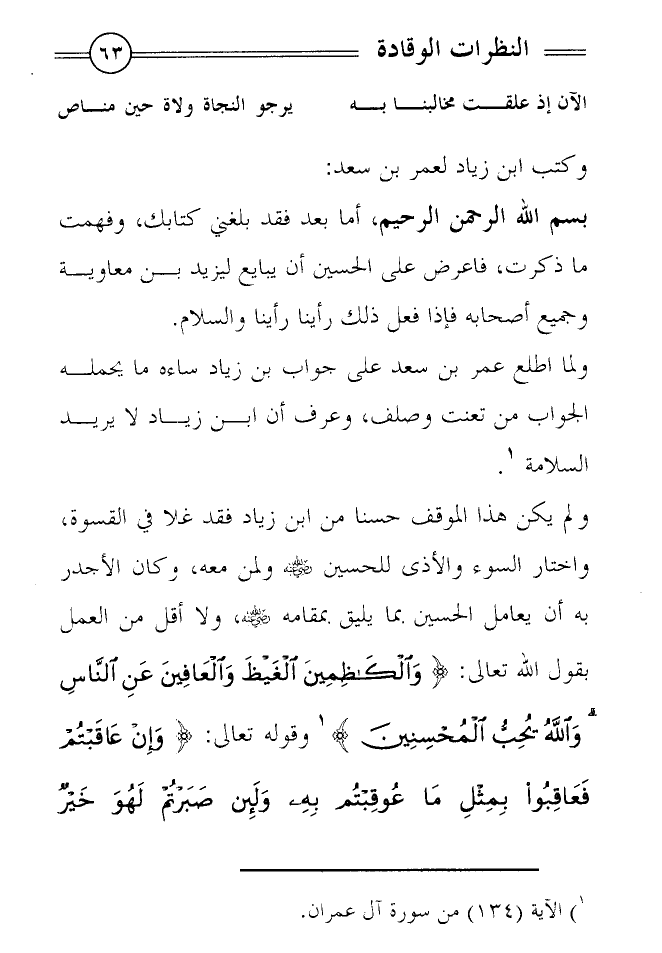 النظرات الوقادة ٦٣
الآن إذ علقت مخالبنا به يرجو النجاة ولاة حين مناص
وكتب ابن زياد لعمر بن سعد:
بسم الله الرحمن الرحيم، أما بعد فقد بلغني كتابك، وفهمت
ما ذكرت، فاعرض على الحسين أن يبايع ليزيد بن معاوية
وجميع أصحابه فإذا فعل ذلك رأينا رأينا والسلام.
ولما اطلع عمر بن سعد على جواب بن زياد ساءه ما يحمله
الجواب من تعنت وصلف، وعرف أن ابن زياد لا يريد
السلامة ١.
ولم يكن هذا الموقف حسنا من ابن زياد فقد غلا في القسوة،
واختار السوء والأذى للحسين ﵁ ولمن معه، وكان الأجدر
به أن يعامل الحسين بما يليق بمقامه ﵁، ولا أقل من العمل
بقول الله تعالى: ﴿ وَٱلْكَـٰظِمِينَ ٱلْغَيْظَ وَٱلْعَافِينَ عَنِ ٱلنَّاسِ
ۗ وَٱللَّهُ يُحِبُّ ٱلْمُحْسِنِينَ ﴾ ١ وقوله تعالى: ﴿ وَإِنْ عَاقَبْتُمْ
فَعَاقِبُوا۟ بِمِثْلِ مَا عُوقِبْتُم بِهِۦ وَلَئِن صَبَرْتُمْ لَهُوَ خَيْرٌ
١) الآية (١٣٤) من سورة آل عمران.